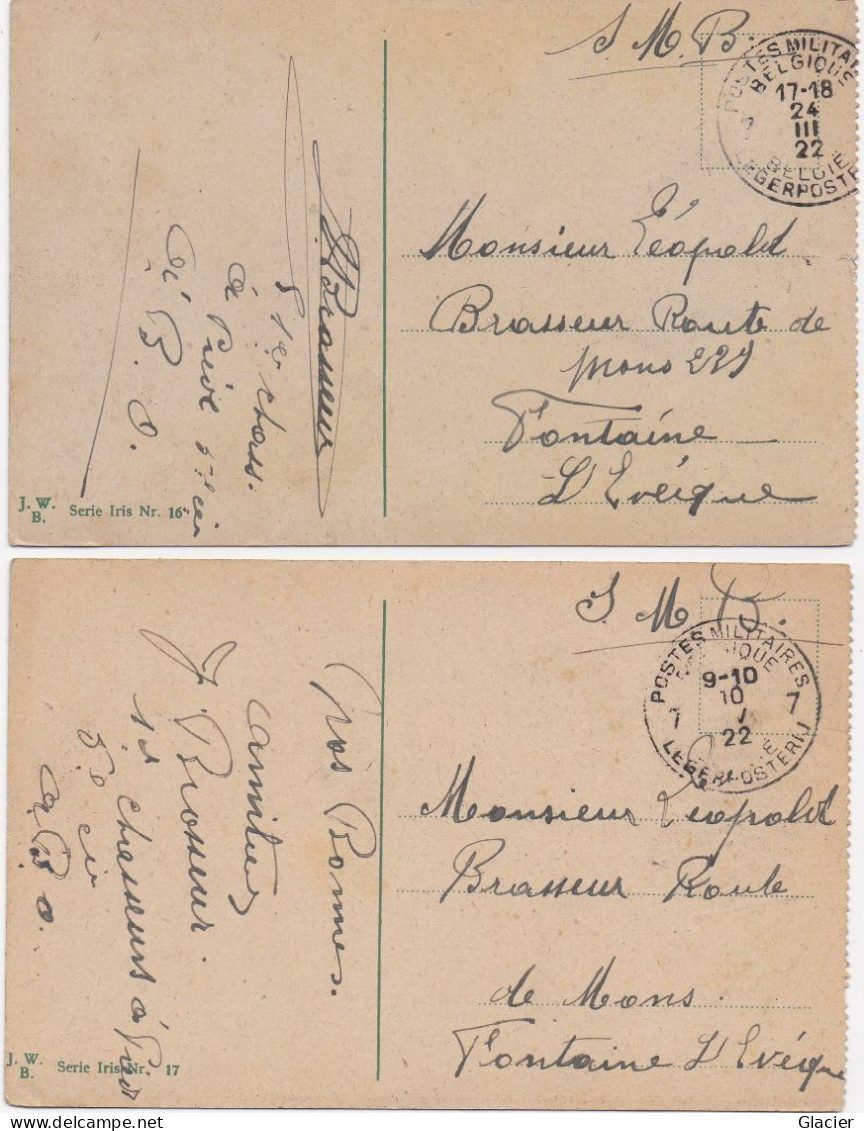 S. M. B.
POSTES MILITAI
BELGIQUE
17-18
24
III
22
7
BELGIE
LEGERPOSTE
Monsieur Léopold
Brasseur Route de
Mons 229
Fontaine
L'Evêique
Brasseur
1er chass.
à Pied
A. B. O.
J. W.
B.
Serie Iris Nr. 16
S. M. B.
POSTES MILITAIRES
BELGIQUE
9-10
10
V
22
7 7
LEGERPOSTERIJ
Monsieur Léopold
Brasseur Route
de Mons.
Fontaine L'Evêque
Nos Bonnes.
amitiés
J. Brasseur.
1er Chasseurs à Pied
5e cie
A. B. O.
J. W.
B.
Serie Iris Nr. 17
Glacier